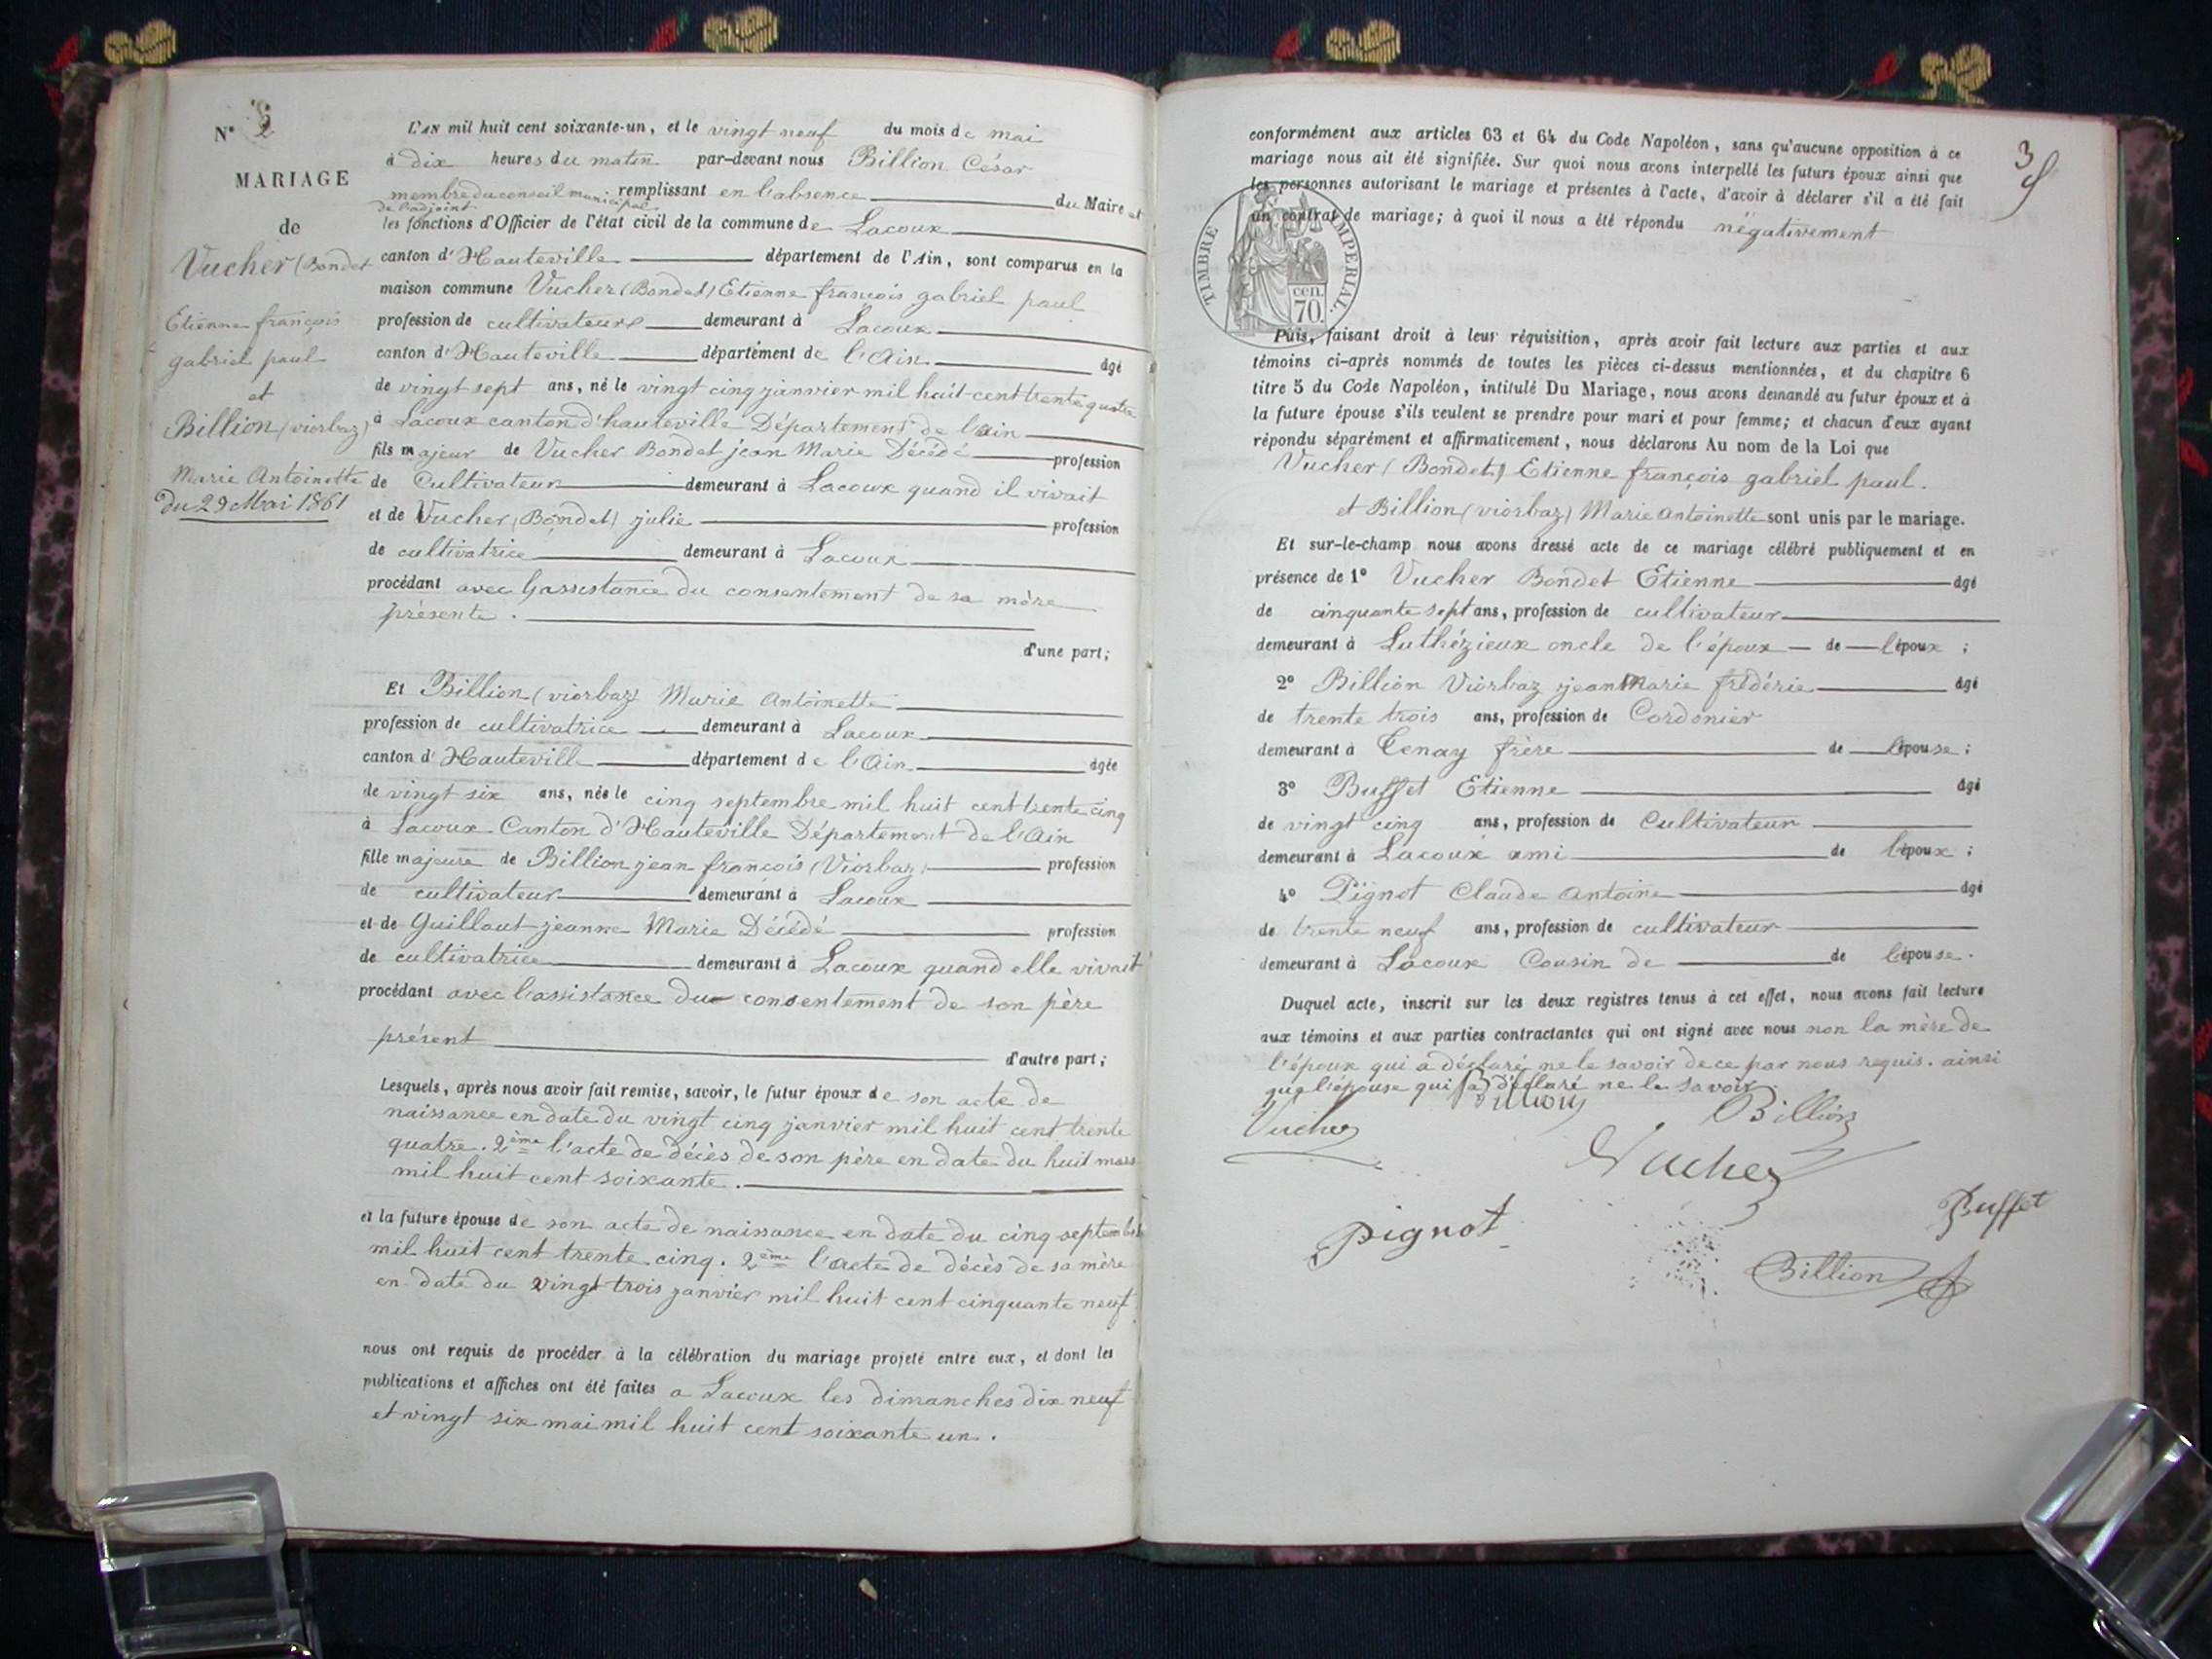 N° 2
MARIAGE
de
Vucher (Bondet
Etienne françois
gabriel paul
et
Billion (viorbaz)
Marie Antoinette
du 29 Mai 1861
L'AN mil huit cent soixante-un, et le vingt neuf du mois de mai
à dix heures du matin par-devant nous Billion César
membre du conseil municipal remplissant en l'absence du Maire et
de l'adjoint
les fonctions d'Officier de l'état civil de la commune de Lacoux
canton d'Hauteville département de l'Ain, sont comparus en la
maison commune Vucher (Bondet) Etienne françois gabriel paul
profession de cultivateur demeurant à Lacoux
canton d'Hauteville département de l'Ain âgé
de vingt sept ans, né le vingt cinq janvier mil huit cent trente quatre
à Lacoux canton d'hauteville Département de l'ain
fils majeur de Vucher Bondet jean Marie Décédé profession
de Cultivateur demeurant à Lacoux quand il vivait
et de Vucher (Bondet) julie profession
de cultivatrice demeurant à Lacoux
procédant avec l'assistance du consentement de sa mère
présente.
d'une part;
Et Billion (viorbaz) Marie Antoinette
profession de cultivatrice demeurant à Lacoux
canton d'Hauteville département de l'Ain âgée
de vingt six ans, née le cinq septembre mil huit cent trente cinq
à Lacoux Canton d'Hauteville Département de l'Ain
fille majeure de Billion jean françois (Viorbaz) profession
de cultivateur demeurant à Lacoux
et de Guillaut jeanne Marie Décédé profession
de cultivatrice demeurant à Lacoux quand elle vivait
procédant avec l'assistance du consentement de son père
présent d'autre part;
Lesquels, après nous avoir fait remise, savoir, le futur époux de son acte de
naissance en date du vingt cinq janvier mil huit cent trente
quatre. 2ème l'acte de décès de son père en date du huit mars
mil huit cent soixante.
et la future épouse de son acte de naissance en date du cinq septembre
mil huit cent trente cinq. 2ème l'acte de décès de sa mère
en date du vingt trois janvier mil huit cent cinquante neuf
nous ont requis de procéder à la célébration du mariage projeté entre eux, et dont les
publications et affiches ont été faites a Lacoux les dimanches dix neuf
et vingt six mai mil huit cent soixante un.
3
conformément aux articles 63 et 64 du Code Napoléon, sans qu'aucune opposition à ce
mariage nous ait été signifiée. Sur quoi nous avons interpellé les futurs époux ainsi que
les personnes autorisant le mariage et présentes à l'acte, d'avoir à déclarer s'il a été fait
un contrat de mariage; à quoi il nous a été répondu négativement
TIMBRE IMPERIAL.
cen.
70.
Puis, faisant droit à leur réquisition, après avoir fait lecture aux parties et aux
témoins ci-après nommés de toutes les pièces ci-dessus mentionnées, et du chapitre 6
titre 5 du Code Napoléon, intitulé Du Mariage, nous avons demandé au futur époux et à
la future épouse s'ils veulent se prendre pour mari et pour femme; et chacun d'eux ayant
répondu séparément et affirmativement, nous déclarons Au nom de la Loi que
Vucher (Bondet) Etienne françois gabriel paul.
et Billion (viorbaz) Marie Antoinette sont unis par le mariage.
Et sur-le-champ nous avons dressé acte de ce mariage célébré publiquement et en
présence de 1° Vucher Bondet Etienne âgé
de cinquante sept ans, profession de cultivateur
demeurant à Luthézieux oncle de l'époux de l'époux ;
2° Billion Viorbaz jean Marie frédéric âgé
de trente trois ans, profession de Cordonier
demeurant à Tenay frère de l'épouse ;
3° Buffet Etienne âgé
de vingt cinq ans, profession de Cultivateur
demeurant à Lacoux ami de l'époux ;
4° Pignot Claude Antoine âgé
de trente neuf ans, profession de cultivateur
demeurant à Lacoux Cousin de de l'épouse.
Duquel acte, inscrit sur les deux registres tenus à cet effet, nous avons fait lecture
aux témoins et aux parties contractantes qui ont signé avec nous non la mère de
l'époux qui a déclaré ne le savoir de ce par nous requis. ainsi
que l'épouse qui a déclaré ne le savoir
Billion
Vucher
Billion
Vucher
Pignot
Buffet
Billion